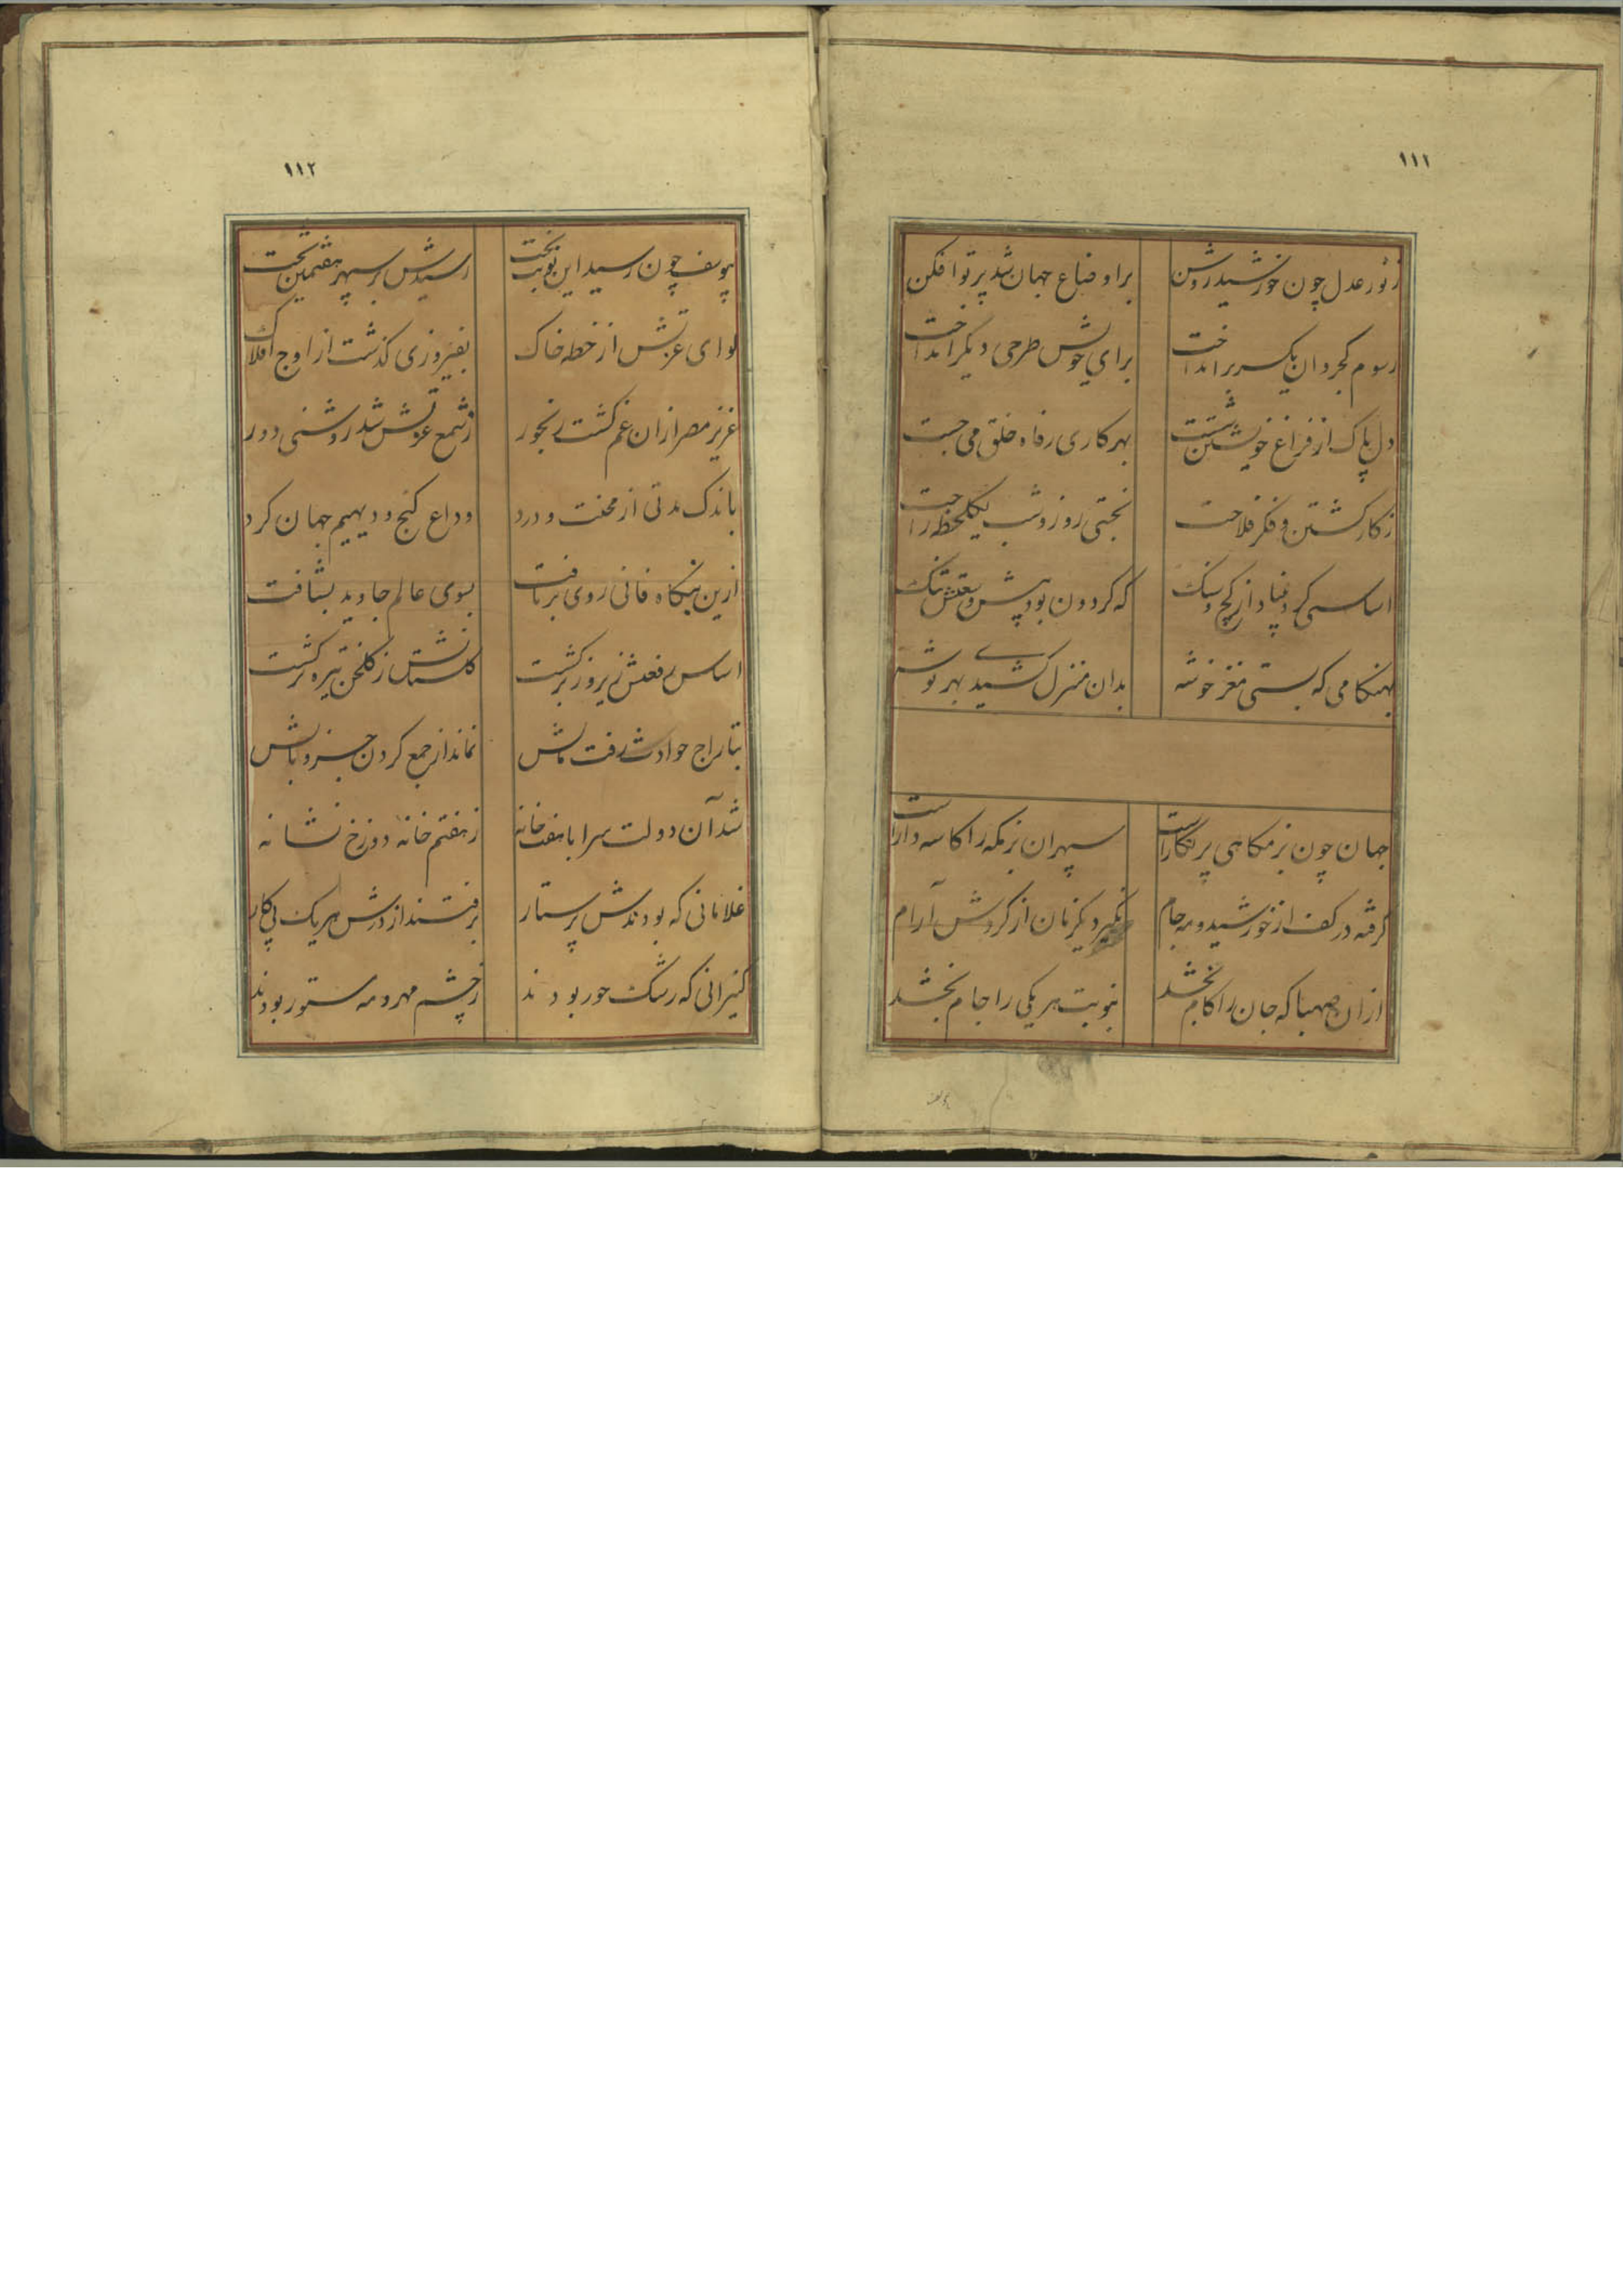 ۱۱۱
ز نور عدل چون خورشید روشن
بر اوضاع جهان شد پرتو افکن
رسوم کجروان یکسر برانداخت
برای خویش طرحی دیگر انداخت
دل پاک از فراغ خویشتن شست
بهر کاری رفاه خلق می جست
ز کار کشتن و فکر فلاحت
نجستی روز و شب یکلحظه راحت
اساسی کرد بنیاد از کچ و سنک
که کردون بود پیش وسعتش تنک
بهنکامی که بستی مغز خوشه
بدان منزل کشیدی بهر توشه
جهان چون بزمکاهی پر نکار است
سپهر ان بزمکه را کاسه دار است
کرفته در کف از خورشید و مه جام
نکیرد یکزمان از کردش آرام
از ان صهبا که جان را کام بخشد
بنوبت هر یکی را جام بخشد
۱۱۲
بیوسف چون رسید این نوبت بخت
رسیدش بر سپهر هفتمین تخت
لوای عزتش از خطه خاک
بفیروزی کذشت از اوج افلاک
عزیز مصر ازان غم کشت رنجور
ز شمع عزتش شد روشنی دور
باندک مدتی از محنت و درد
وداع کنج و دیهیم جهان کرد
ازین بنکاه فانی روی برتافت
بسوی عالم جاوید بشتافت
اساس رفعتش زیر و زبر کشت
کلستانش ز کلخن تیره تر کشت
بتاراج حوادث رفت مالش
نماند از جمع کردن جز وبالش
شد آن دولت سرا با هفت خانه
ز هفتم خانه دوزخ نشانه
غلامانی که بودندش پرستار
برفتند از درش هر یک پی کار
کنیزانی که رشک حور بودند
ز چشم مهر و مه مستور بودند